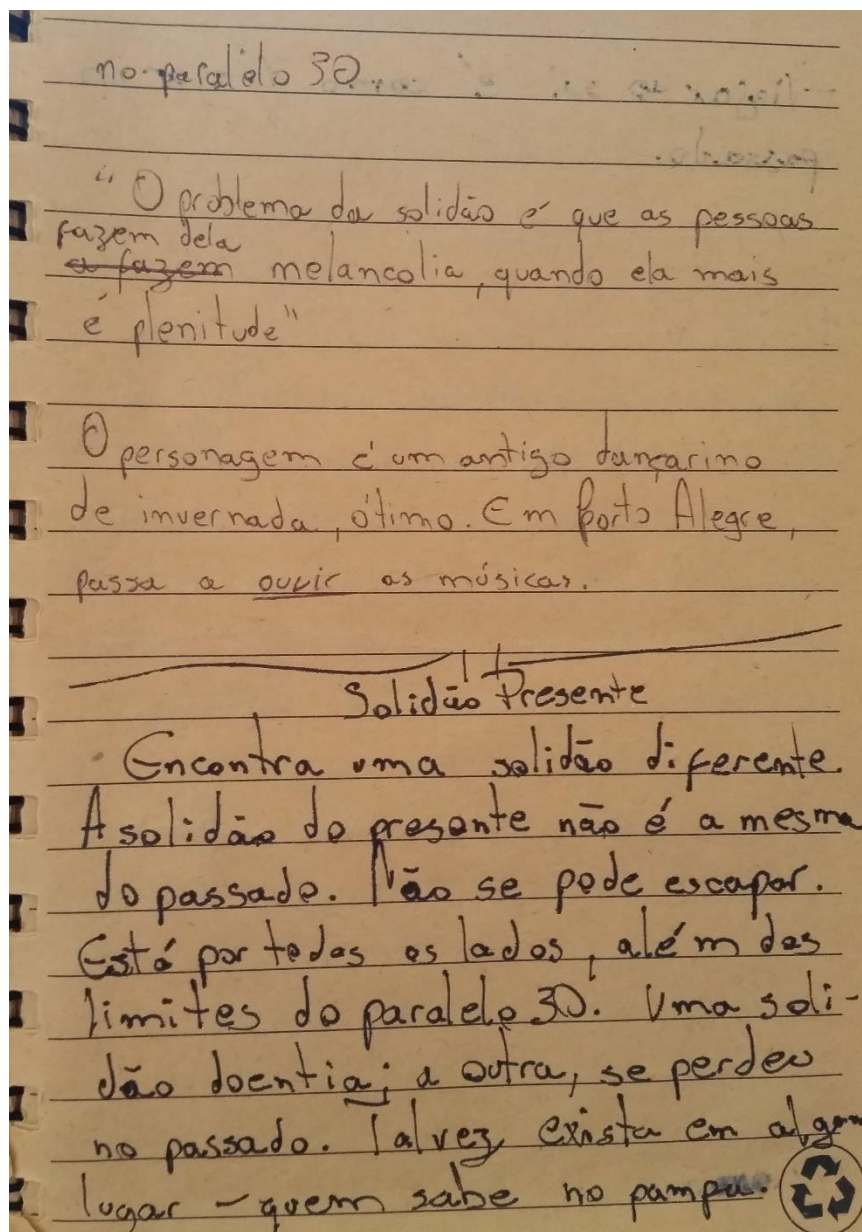 no paralelo 30
"O problema da solidão é que as pessoas
fazem dela
a fazem melancolia, quando ela mais
é plenitude"
O personagem é um antigo dançarino
de invernada, ótimo. Em Porto Alegre,
passa a ouvir as músicas.
Solidão Presente
Encontra uma solidão diferente.
A solidão do presente não é a mesma
do passado. Não se pode escapar.
Está por todos os lados, além dos
limites do paralelo 30. Uma soli-
dão doentia; a outra, se perdeu
no passado. Talvez exista em algum
lugar – quem sabe no pampa.